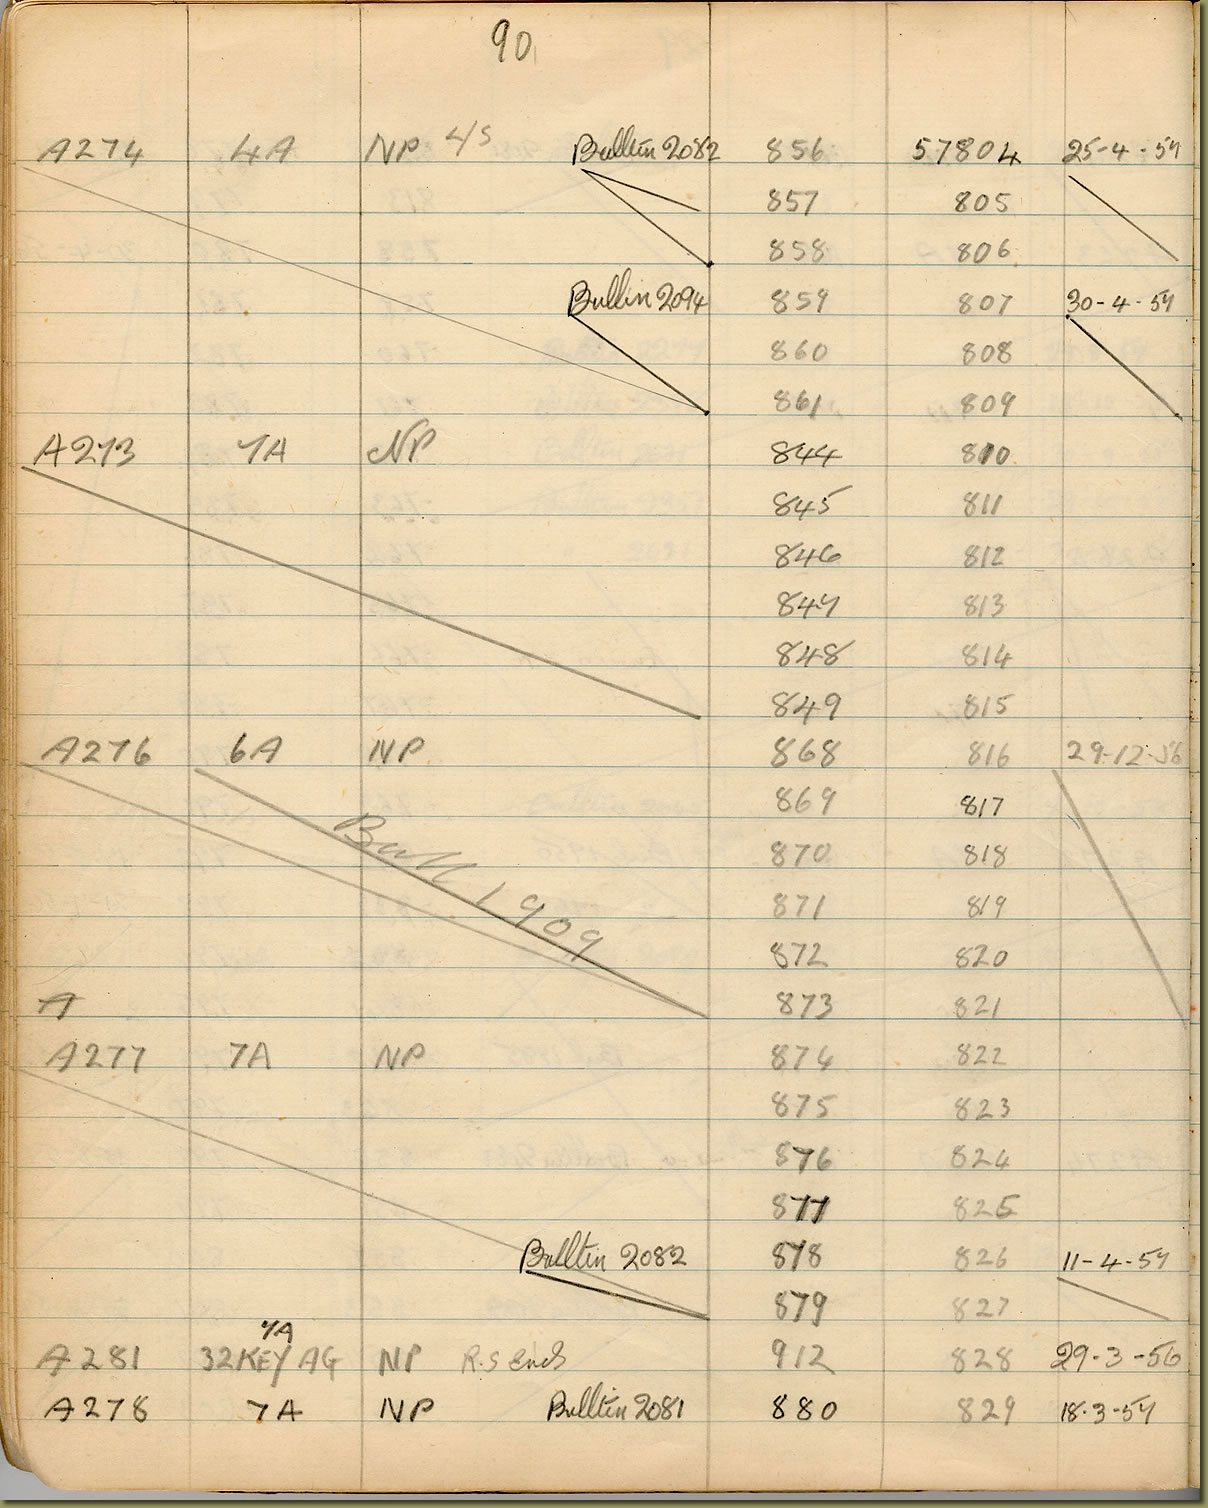 90
A274 4A NP 4/S Bulltin 2082 856 57804 25-4-57
857 805
858 806
Bulltin 2094 859 807 30-4-57
860 808
861 809
A273 7A NP 844 810
845 811
846 812
847 813
848 814
849 815
A276 6A NP 868 816 29-12-56
869 817
870 818
Bull 1909 871 819
872 820
A 873 821
A277 7A NP 874 822
875 823
876 824
877 825
Bulltin 2082 878 826 11-4-57
879 827
7A
A281 32KEY AG NP R.S Ends 912 828 29-3-56
A278 7A NP Bulltin 2081 880 829 18-3-57